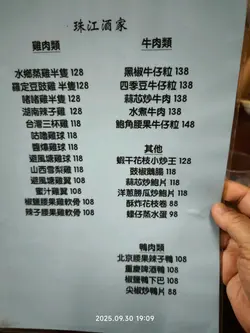 珠江酒家
雞肉類
水鄉蒸雞 半隻 128
羅定豆豉雞 半隻 128
啫啫雞半隻 128
湖南辣子雞 128
台灣三杯雞 118
咕嚕雞球 108
醬爆雞球 108
避風塘雞球 108
山西雪梨雞 118
避風塘雞翼 108
蜜汁雞翼 108
椒鹽腰果雞軟骨 108
辣子腰果雞軟骨 108
牛肉類
黑椒牛仔粒 138
四季豆牛仔粒 138
蒜芯炒牛肉 138
水煮牛肉 108
鮑角腰果牛仔粒 148
其他
蝦干花枝小炒王 128
豉椒鵝腸 118
蒜芯炒鮑片 118
洋蔥勝瓜炒鮑片 118
酥炸花枝卷 98
蠔仔蒸水蛋 98
鴨肉類
北京腰果辣子鴨 108
重慶啤酒鴨 108
椒鹽鴨下巴 108
尖椒炒鴨片 88
2025.09.30 19:09